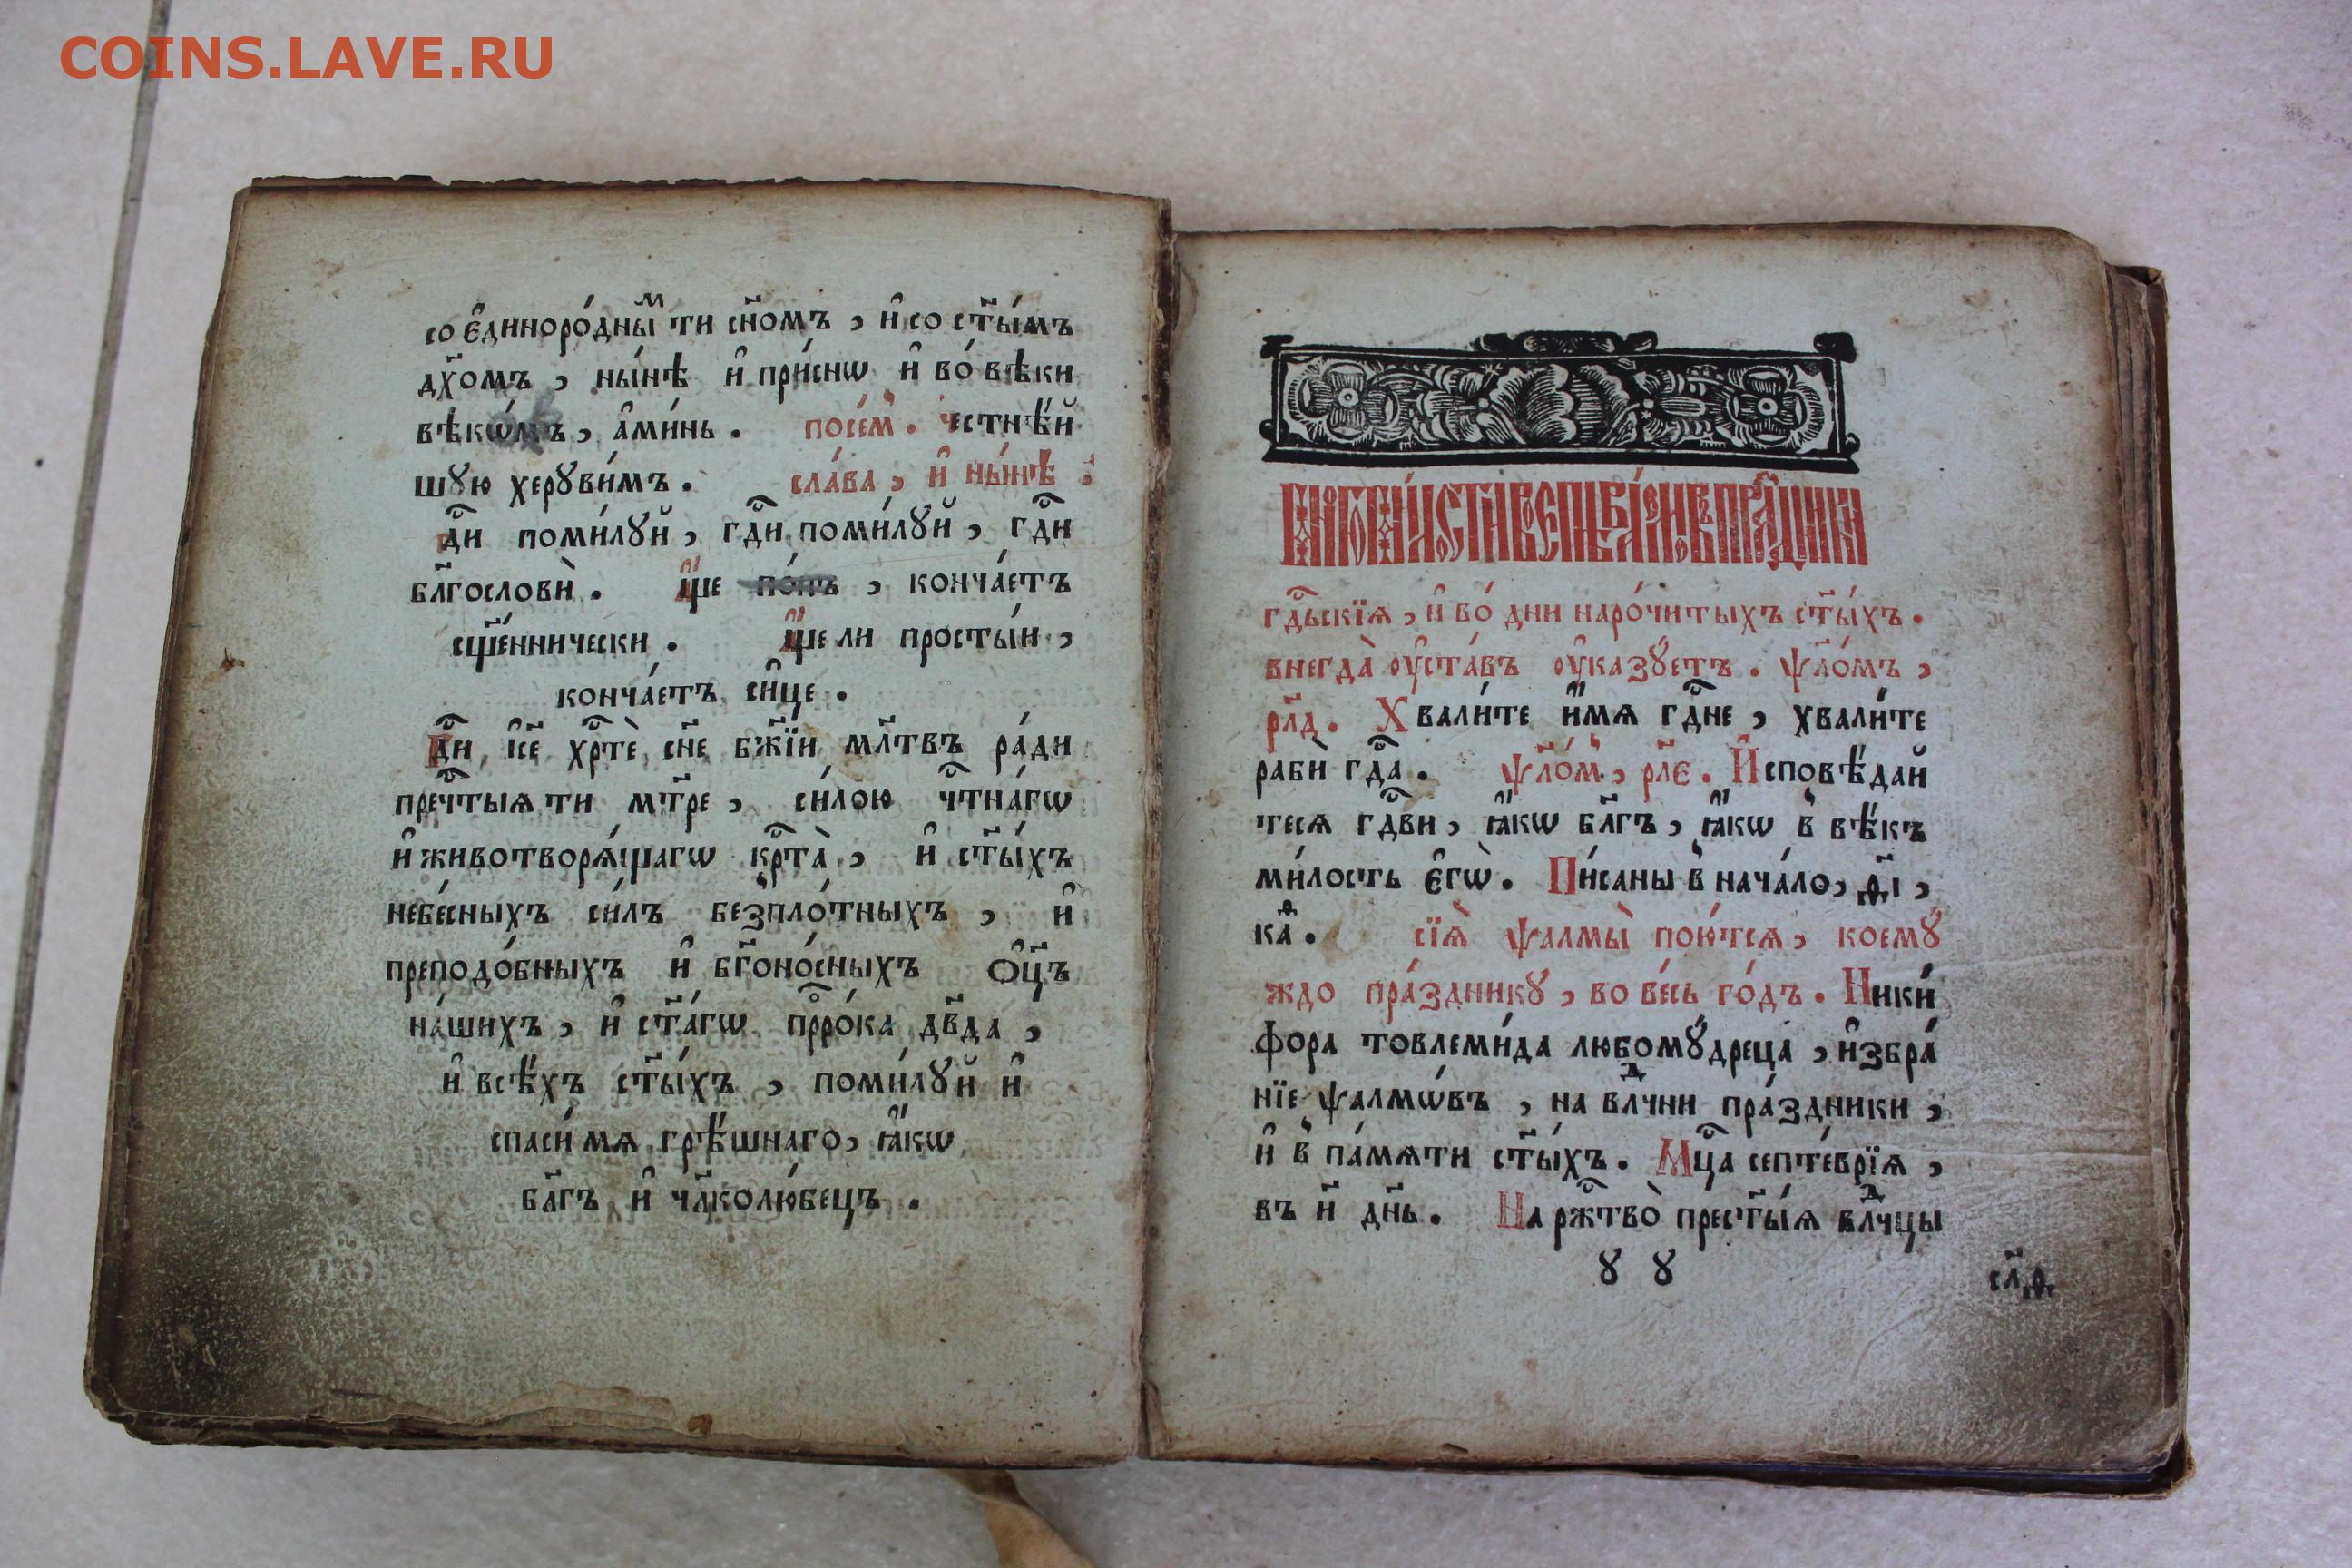 COINS.LAVE.RU
со є҆диноро́дныⷨ ти сн҃омъ , и҆ со ст҃ы́мъ
дх҃омъ , ны́нѣ и҆ при́снѡ и҆ во́ вѣки
вѣкѡ́мъ , а҆ми́нь . посе́м . честнѣ́й
шꙋю херꙋви́мъ . сла́ва , и҆ ны́нѣ :
гдⷭ҇и поми́лꙋй , гдⷭ҇и поми́лꙋй , гдⷭ҇и
бл҃гослови̇̀ . а҆́ще по́пъ , конча́етъ
сщ҃е́ннически . а҆́ще ли просты́и ,
конча́етъ си́це .
Гдⷭ҇и , і҆с҃е хрⷭ҇тѐ , сн҃е бж҃їи , мл҃твъ ра́ди
пречⷭ҇тыѧ ти мт҃ре , си́лою чⷭ҇тна́гѡ
и҆ животворѧ́щагѡ крⷭ҇та̀ , и҆ ст҃ы́хъ
небе́сныхъ си́лъ безпло́тныхъ , и҆
преподо́бныхъ и҆ бг҃оно́сныхъ Ѻ҆ц҃ъ
на́шихъ , и҆ ст҃а́гѡ прⷪ҇ро́ка дв҃да ,
и҆ всѣ́хъ ст҃ы́хъ , поми́лꙋй и҆
спаси́ мѧ грѣ́шнаго , ꙗ҆́кѡ
бл҃гъ и҆ чл҃колю́бецъ .
гдⷭ҇ьскїѧ , и҆ во́ дни наро́читыхъ ст҃ы́хъ .
внегда̀ оу҆ста́въ оу҆ка́зꙋетъ . ѱло́мъ ,
рл҃д . Хвали́те и҆́мѧ гдⷭ҇не , хвали́те
раби̇̀ гдⷭ҇а . ѱло́м , рл҃є . И҆сповѣ́дай
тесѧ гдⷭ҇ви , ꙗ҆́кѡ бл҃гъ , ꙗ҆́кѡ в вѣ́къ
ми́лость є҆гѡ̀ . Пи́саны в нача́ло , д҃і ,
ка . сїѧ̀ ѱалмы̀ пою́тсѧ , коемꙋ́
ждо пра́зднику , во ве́сь го́дъ . Ники́
фора товлеми́да любомꙋ́дреца , и҆збра́
нїе ѱалмѡ́въ , на влⷣчни пра́здники ,
и҆ в па́мѧти ст҃ы́хъ . Мцⷭ҇а септе́врїѧ ,
въ и҃ дн҃ь . На ржⷭ҇тво̀ прест҃ы́ѧ влⷣчцы
ꙋ ꙋ